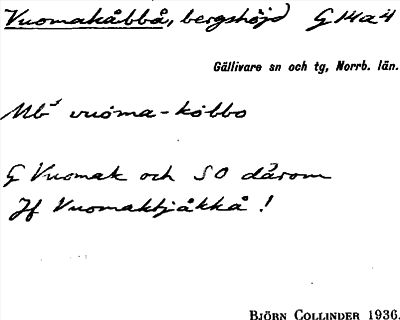 Vuomakåbbå, bergshöjd G 14a4
Gällivare sn och tg, Norrb. län.
Mb vuoma-kobbo
G Vuomak och SO därom
Jf Vuomaktjåkkå !
BJÖRN COLLINDER 1936.